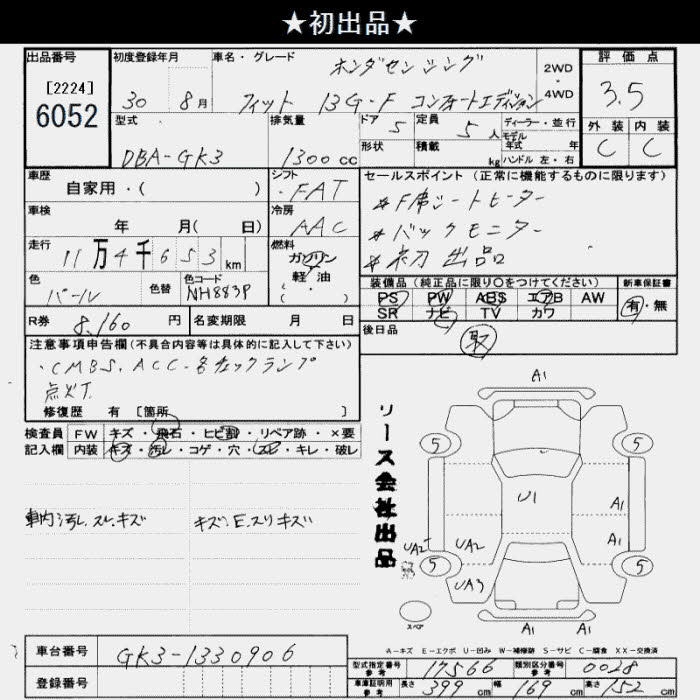 ★初出品★
出品番号
[2224]
6052
初度登録年月
30 8月
車名・グレード
ホンダセンシング
フィット 13G・F コンフォートエディション
2WD
・
4WD
評価点
3.5
外装 内装
C C
型式
DBA-GK3
排気量
1300cc
ドア 5
定員 5人
ディーラー・並行
モデル年式 年
形状
積載 kg
ハンドル 左・右
車歴
自家用・( )
シフト
・FAT
セールスポイント (正常に機能するものに限ります)
*F席シートヒーター
*バックモニター
*初出品
車検
年 月( 日)
冷房
AAC
走行
11万4千653km
燃料
ガソリン
軽・油
( )
色
パール
色替
色コード
NH883P
装備品 (純正品に限り○をつけてください)
PS PW ABS エアB AW
SR ナビ TV カワ
新車保証書
有・無
R券 8,160円
名変期限 月 日
後日品
取
注意事項申告欄 (不具合内容等は具体的に記入して下さい)
・CMBS、ACC・各チェックランプ
点灯
修復歴 有 [箇所 ]
検査員
記入欄
FW キズ・飛石・ヒビ割・リペア跡・×要
内装 キズ・汚レ・コゲ・穴・スレ・キレ・破レ
車内汚レ、スレ、キズ
キズ、E、スリキズ
リース会社出品
A1
5 5
U1
A1
A1
UA2
UA2
5 5
UA3
A1
A1 A1
スペア
A-キズ E-エクボ U-凹み W-補修跡 S-サビ C-腐食 XX-交換済
車台番号 GK3-1330906
登録番号
型式指定番号 参考 17566
類別区分番号 参考 0028
車庫証明用 参考 長さ 399cm 幅 169cm 高さ 152cm